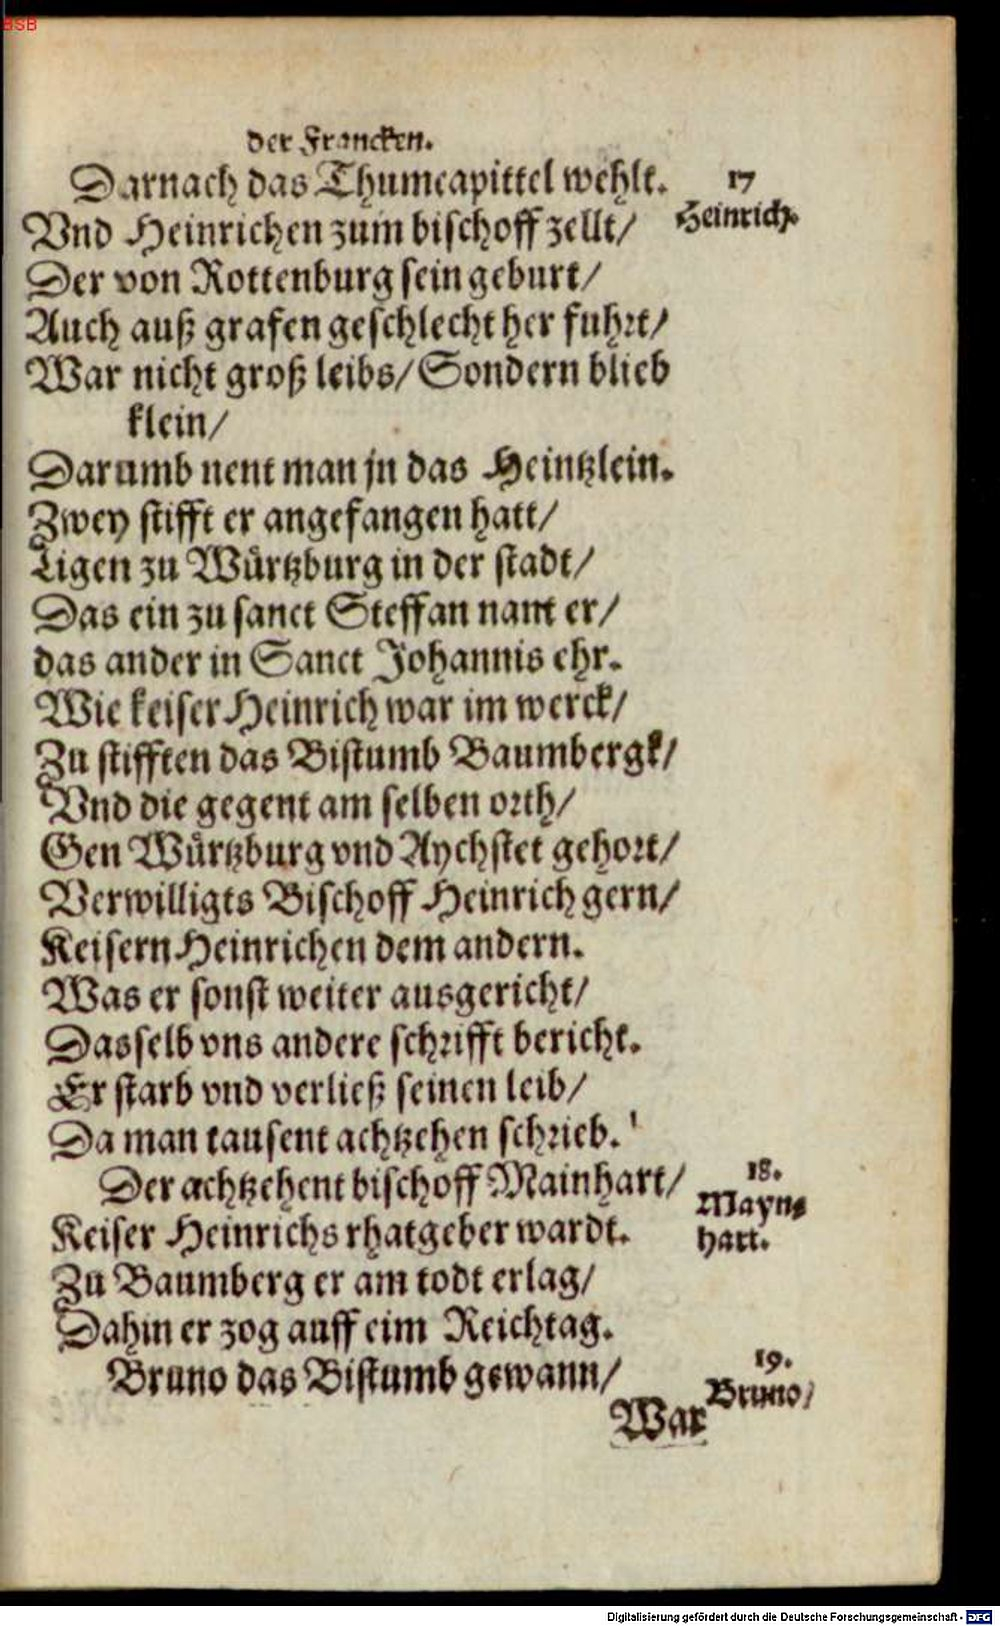 BSB
der Francken.
Darnach das Thumcapittel wehlt. 17
Vnd Heinrichen zum bischoff zellt/ Heinrich.
Der von Rottenburg sein geburt/
Auch auß grafen geschlecht her fuhrt/
War nicht groß leibs/ Sondern blieb
klein/
Darumb nent man jn das Heintzlein.
Zwey stifft er angefangen hatt/
Ligen zu Würtzburg in der stadt/
Das ein zu sanct Steffan nant er/
das ander in Sanct Johannis ehr.
Wie keiser Heinrich war im werck/
Zu stifften das Bistumb Baumbergk/
Vnd die gegent am selben orth/
Gen Würtzburg vnd Aychstet gehort/
Verwilligts Bischoff Heinrich gern/
Keisern Heinrichen dem andern.
Was er sonst weiter ausgericht/
Dasselb vns andere schrifft bericht.
Er starb vnd verließ seinen leib/
Da man tausent achtzehen schrieb.
Der achtzehent bischoff Mainhart/ 18.
Mayn⸗
Keiser Heinrichs rhatgeber wardt. hart.
Zu Baumberg er am todt erlag/
Dahin er zog auff eim Reichtag.
Bruno das Bistumb gewann/ 19.
Bruno/
War
Digitalisierung gefördert durch die Deutsche Forschungsgemeinschaft - DFG